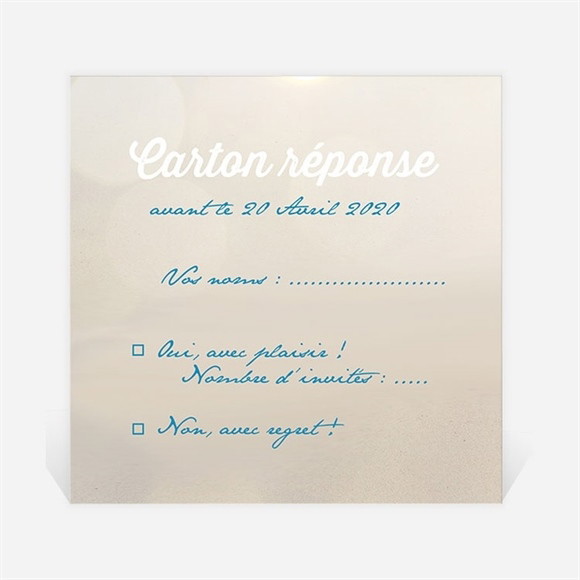 Carton réponse
avant le 20 Avril 2020
Vos noms : ......................
Oui, avec plaisir !
Nombre d'invités : .....
Non, avec regret !